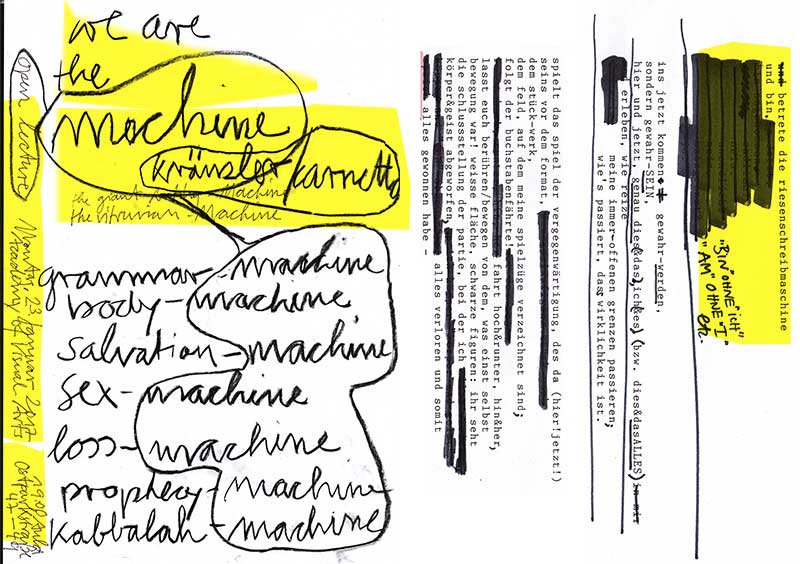 we are
the
machine
kränzler karnetta
the giant letter-machine
the vitruvian-machine
grammar-machine
body-machine
salvation-machine
sex-machine
loss-machine
prophecy-machine
kabbalah-machine
open lecture
Monta 23 january 2017
Academy of Visual Arts
19.00 Aula
und betrete die riesenschreibmaschine
und bin.
"BIN" OHNE "ich"
"AM" OHNE "I"
etc.
ins jetzt kommen gewahr-werden,
sondern gewahr-SEIN.
hier und jetzt. genau dies&das)ich&es) (bzw. dies&dasALLES) in mir
erleben, wie reize
meine immer-offenen grenzen passieren;
wie's passiert, dass wirklichkeit ist.
spielt das spiel der vergegenwärtigung, des da (hier!jetzt!)
seins vor dem format,
dem stück-werk
dem feld, auf dem meine spielzüge verzeichnet sind;
folgt der buchstabenfährte!
fahrt hoch&runter, hin&her,
lasst euch berühren/bewegen von dem, was einst selbst
bewegung war! weisse fläche, schwarze figuren: ihr seht
die schlussstellung der partie, bei der ich
körper&geist abgeworfen, alles verloren und somit
alles gewonnen habe -